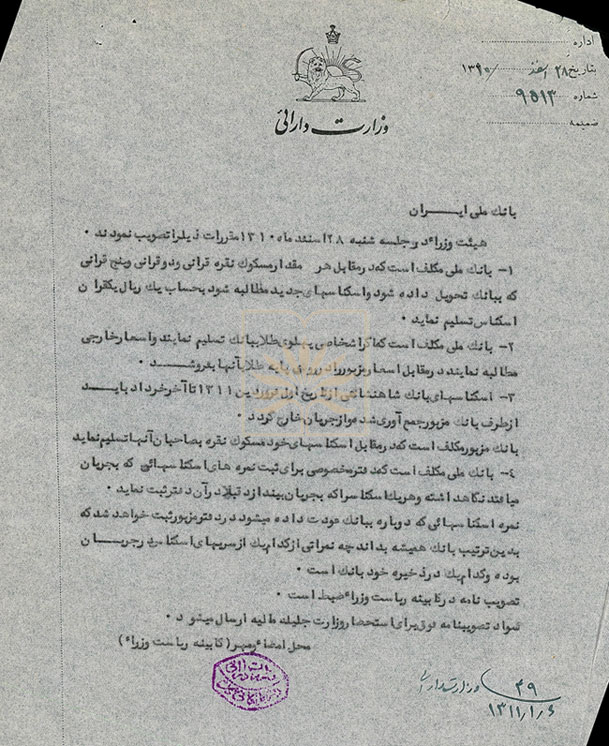 اداره
بتاریخ ۲۸ اسفند ۱۳۱۰
شماره ۹۵۱۳
ضمیمه
وزارت دارائی
بانك ملی ایـــران
هیئت وزراء در جلسه شنبه ۲۸ اسفند ماه ۱۳۱۰ مقررات ذیل را تصویب نمودند ۰
۱- بانك ملی مكلف است که در مقابل هر مقدار مسكوك نقره قرانی و دو قرانی و پنج قرانی
که ببانك تحویل داده شود و اسكناسهای جدید مطالبه شود بحساب یك ریال یكقران
اسكناس تسلیم نماید ۰
۲- بانك ملی مكلف است که اگر اشخاصی پهلوی طلا ببانك تسلیم نمایند و اسعار خارجی
مطالبه نمایند در مقابل اسعار مزبور را از روی پایه طلا بآنها بفروشد ۰
۳- اسكناسهای بانك شاهنشاهی از تاریخ اول فروردین ۱۳۱۱ تا آخر خرداد بایـد
از طرف بانك مزبور جمع آوری شده و از جریان خارج گردد ۰
بانك مزبور مكلف است که در مقابل اسكناسهای خود مسكوك نقره بصاحبان آنها تسلیم نماید
٤- بانك ملی مكلف است که دفتر مخصوصی برای ثبت نمره های اسكناسهائی که بجریان
میافتد نگاهداشته و هر یك اسكناس را که بجریان بیندازد قبلا در آن دفتر ثبت نماید ۰
نمره اسكناسهائی که دوباره ببانك عودت داده میشود در دفتر مزبور ثبت خواهد شد که
بدین ترتیب بانك همیشه بداند چه نمراتی از کدام یك از سریهای اسكناس در جریـــان
بوده و کدام یك در ذخیره خود بانك است ۰
تصویب نامه در کابینه ریاست وزراء ضبط است ۰
سواد تصویبنامه فوق برای استحضار وزارت جلیله مالیه ارسال میشود ۰
محل امضاء و مهر (کابینه ریاست وزراء)
۴۹ وزارت دارائی
۱۳۱۱/۱/۶